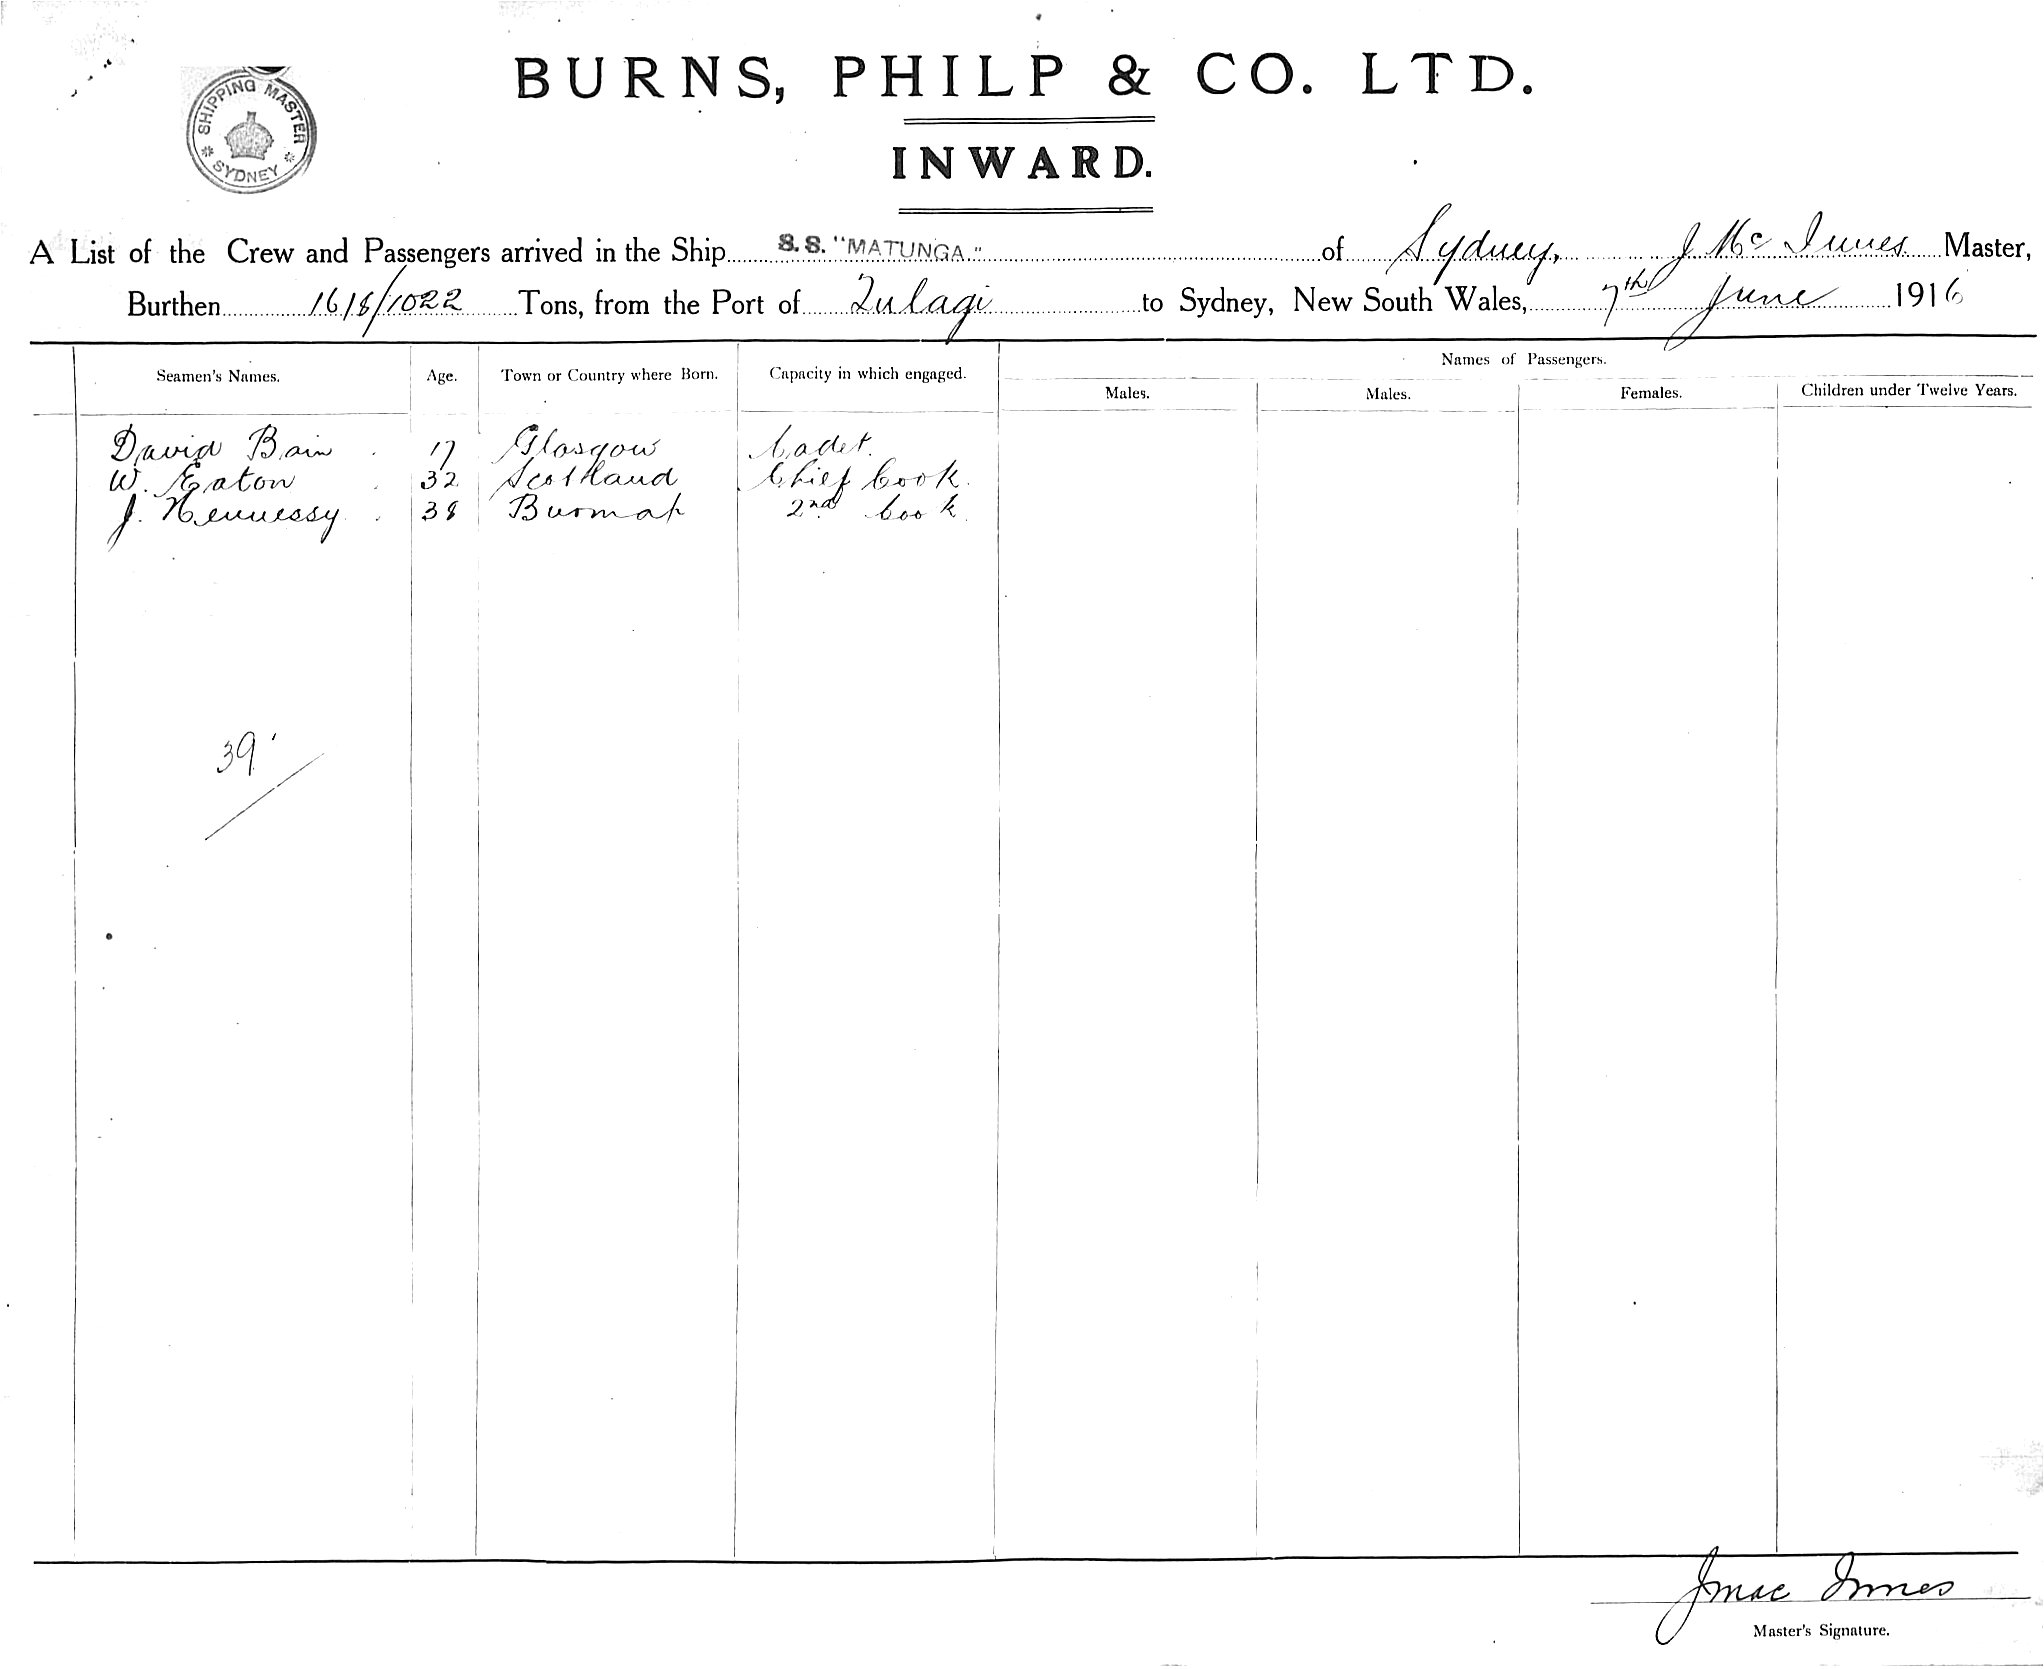 SHIPPING MASTER
* SYDNEY *
BURNS, PHILP & CO. LTD.
INWARD.
A List of the Crew and Passengers arrived in the Ship S.S. "MATUNGA." of Sydney, J McInnes Master,
Burthen 1618/1022 Tons, from the Port of Tulagi to Sydney, New South Wales, 7th June 1916
Names of Passengers.
Seamen's Names. Age. Town or Country where Born. Capacity in which engaged. Males. Males. Females. Children under Twelve Years.
David Bain 17 Glasgow Cadet.
W. Eaton 32 Scotland Chief Cook.
J. Hennessy 38 Burmah 2nd Cook.
39
J Mac Innes
Master's Signature.